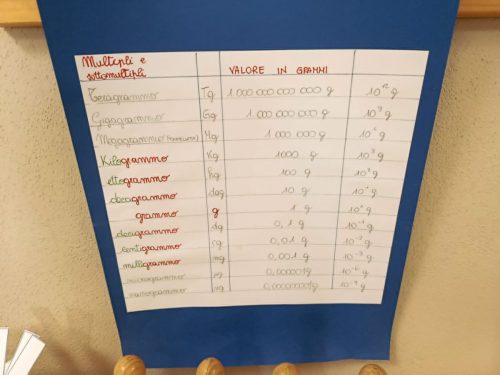 Multipli e
sottomultipli VALORE IN GRAMMI
Teragrammo Tg 1 000 000 000 000 g 10¹² g
Gigagrammo Gg 1 000 000 000 g 10⁹ g
Megagrammo Mg 1 000 000 g 10⁶ g
Kilogrammo Kg 1000 g 10³ g
ettogrammo hg 100 g 10² g
decagrammo dag 10 g 10¹ g
grammo g 1 g 10⁰ g
decigrammo dg 0,1 g 10⁻¹ g
centigrammo cg 0,01 g 10⁻² g
milligrammo mg 0,001 g 10⁻³ g
microgrammo µg 0,000001g 10⁻⁶ g
nanogrammo ng 10⁻⁹ g